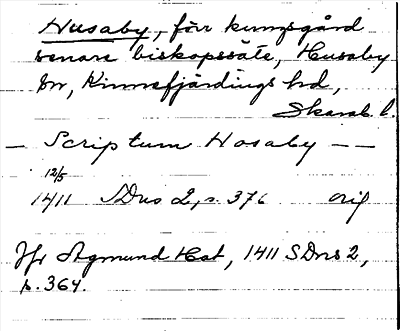 Husaby, förr kungsgård
senare biskopssäte, Husaby
sn, Kinnefjärdings hd,
Skarab. l.
— Scriptum Hosaby — —
12/5
1411 SDns 2, s. 376 orig
Jfr Agmund Hat, 1411 SDns 2,
s. 364.